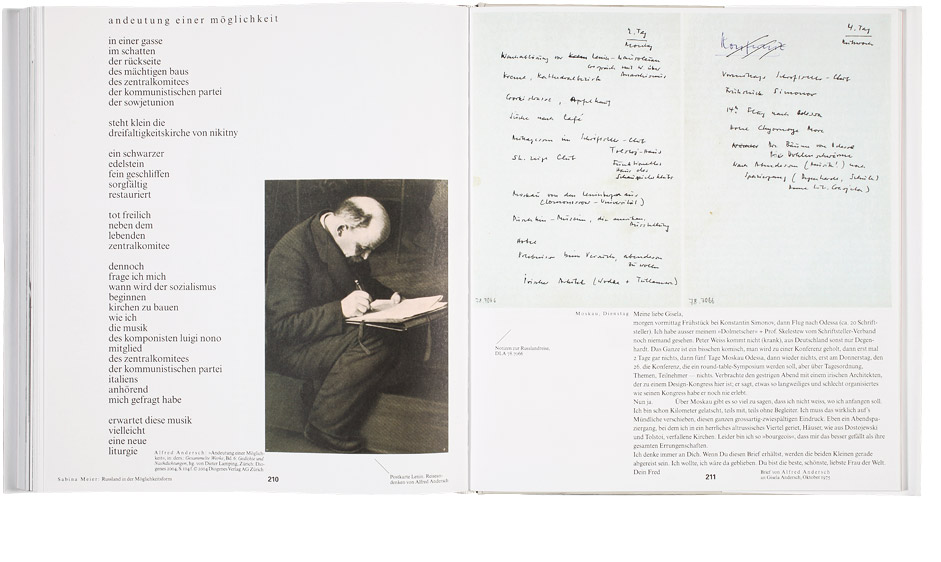 andeutung einer möglichkeit
in einer gasse
im schatten
der rückseite
des mächtigen baus
des zentralkomitees
der kommunistischen partei
der sowjetunion
steht klein die
dreifaltigkeitskirche von nikitny
ein schwarzer
edelstein
fein geschliffen
sorgfältig
restauriert
tot freilich
neben dem
lebenden
zentralkomitee
dennoch
frage ich mich
wann wird der sozialismus
beginnen
kirchen zu bauen
wie ich
die musik
des komponisten luigi nono
mitglied
des zentralkomitees
der kommunistischen partei
italiens
anhörend
mich gefragt habe
erwartet diese musik
vielleicht
eine neue
liturgie
Alfred Andersch: »Andeutung einer Möglich-
keit«, in: ders.: Gesammelte Werke, Bd. 6: Gedichte und
Nachdichtungen, hg. von Dieter Lamping, Zürich: Dio-
genes 2004, S.
© 2004 Diogenes Verlag AG Zürich
Sabina Meier: Russland in der Möglichkeitsform
210
Postkarte Lenin.
denken von Alfred Andersch
2. Tag
Montag
Kreml,
Gorkistrasse, Apfelkauf
Suche nach Café
Mittagessen im Schriftsteller-Club
Tolstoj-Haus
Moskau von den Leninbergen aus
(Lomonossow-Universität)
Puschkin-Museum, die amerikan.
Ausstellung
Hotel
zu wollen
4. Tag
Mittwoch
Vormittags Schriftsteller-Club
Frühstück Simonov
14h Flug nach Odessa
Moskau, Dienstag
Meine liebe Gisela,
morgen vormittag Frühstück bei Konstantin Simonov, dann Flug nach Odessa (ca. 20 Schrift-
steller). Ich habe ausser meinem »Dolmetscher« + Prof. Skolestew vom Schriftsteller-Verband
noch niemand gesehen. Peter Weiss kommt nicht (krank), aus Deutschland sonst nur Degen-
hardt. Das Ganze ist ein bisschen komisch, man wird zu einer Konferenz geholt, dann erst mal
2 Tage gar nichts, dann fünf Tage Moskau Odessa, dann wieder nichts, erst am Donnerstag, den
26. die Konferenz, die ein round-table-Symposium werden soll, aber über Tagesordnung,
Themen, Teilnehmer — nichts. Verbrachte den gestrigen Abend mit einem irischen Architekten,
der zu einem Design-Kongress hier ist; er sagt, etwas so langweiliges und schlecht organisiertes
wie seinen Kongress habe er noch nie erlebt.
Nun ja. Über Moskau gibt es so viel zu sagen, dass ich nicht weiss, wo ich anfangen soll.
Ich bin schon Kilometer gelatscht, teils mit, teils ohne Begleiter. Ich muss das wirklich auf's
Mündliche verschieben, diesen ganzen grossartig-zwiespältigen Eindruck. Eben ein Abendspa-
ziergang, bei dem ich in ein herrliches altrussisches Viertel geriet, Häuser, wie aus Dostojewski
und Tolstoi, verfallene Kirchen. Leider bin ich so »bourgeois«, dass mir das besser gefällt als ihre
gesamten Errungenschaften.
Ich denke immer an Dich. Wenn Du diesen Brief erhältst, werden die beiden Kleinen gerade
abgereist sein. Ich wollte, ich wäre da geblieben. Du bist die beste, schönste, liebste Frau der Welt.
Dein Fred
Notizen zur Russlandreise.
211
Brief von Alfred Andersch
an Gisela Andersch, Oktober 1973